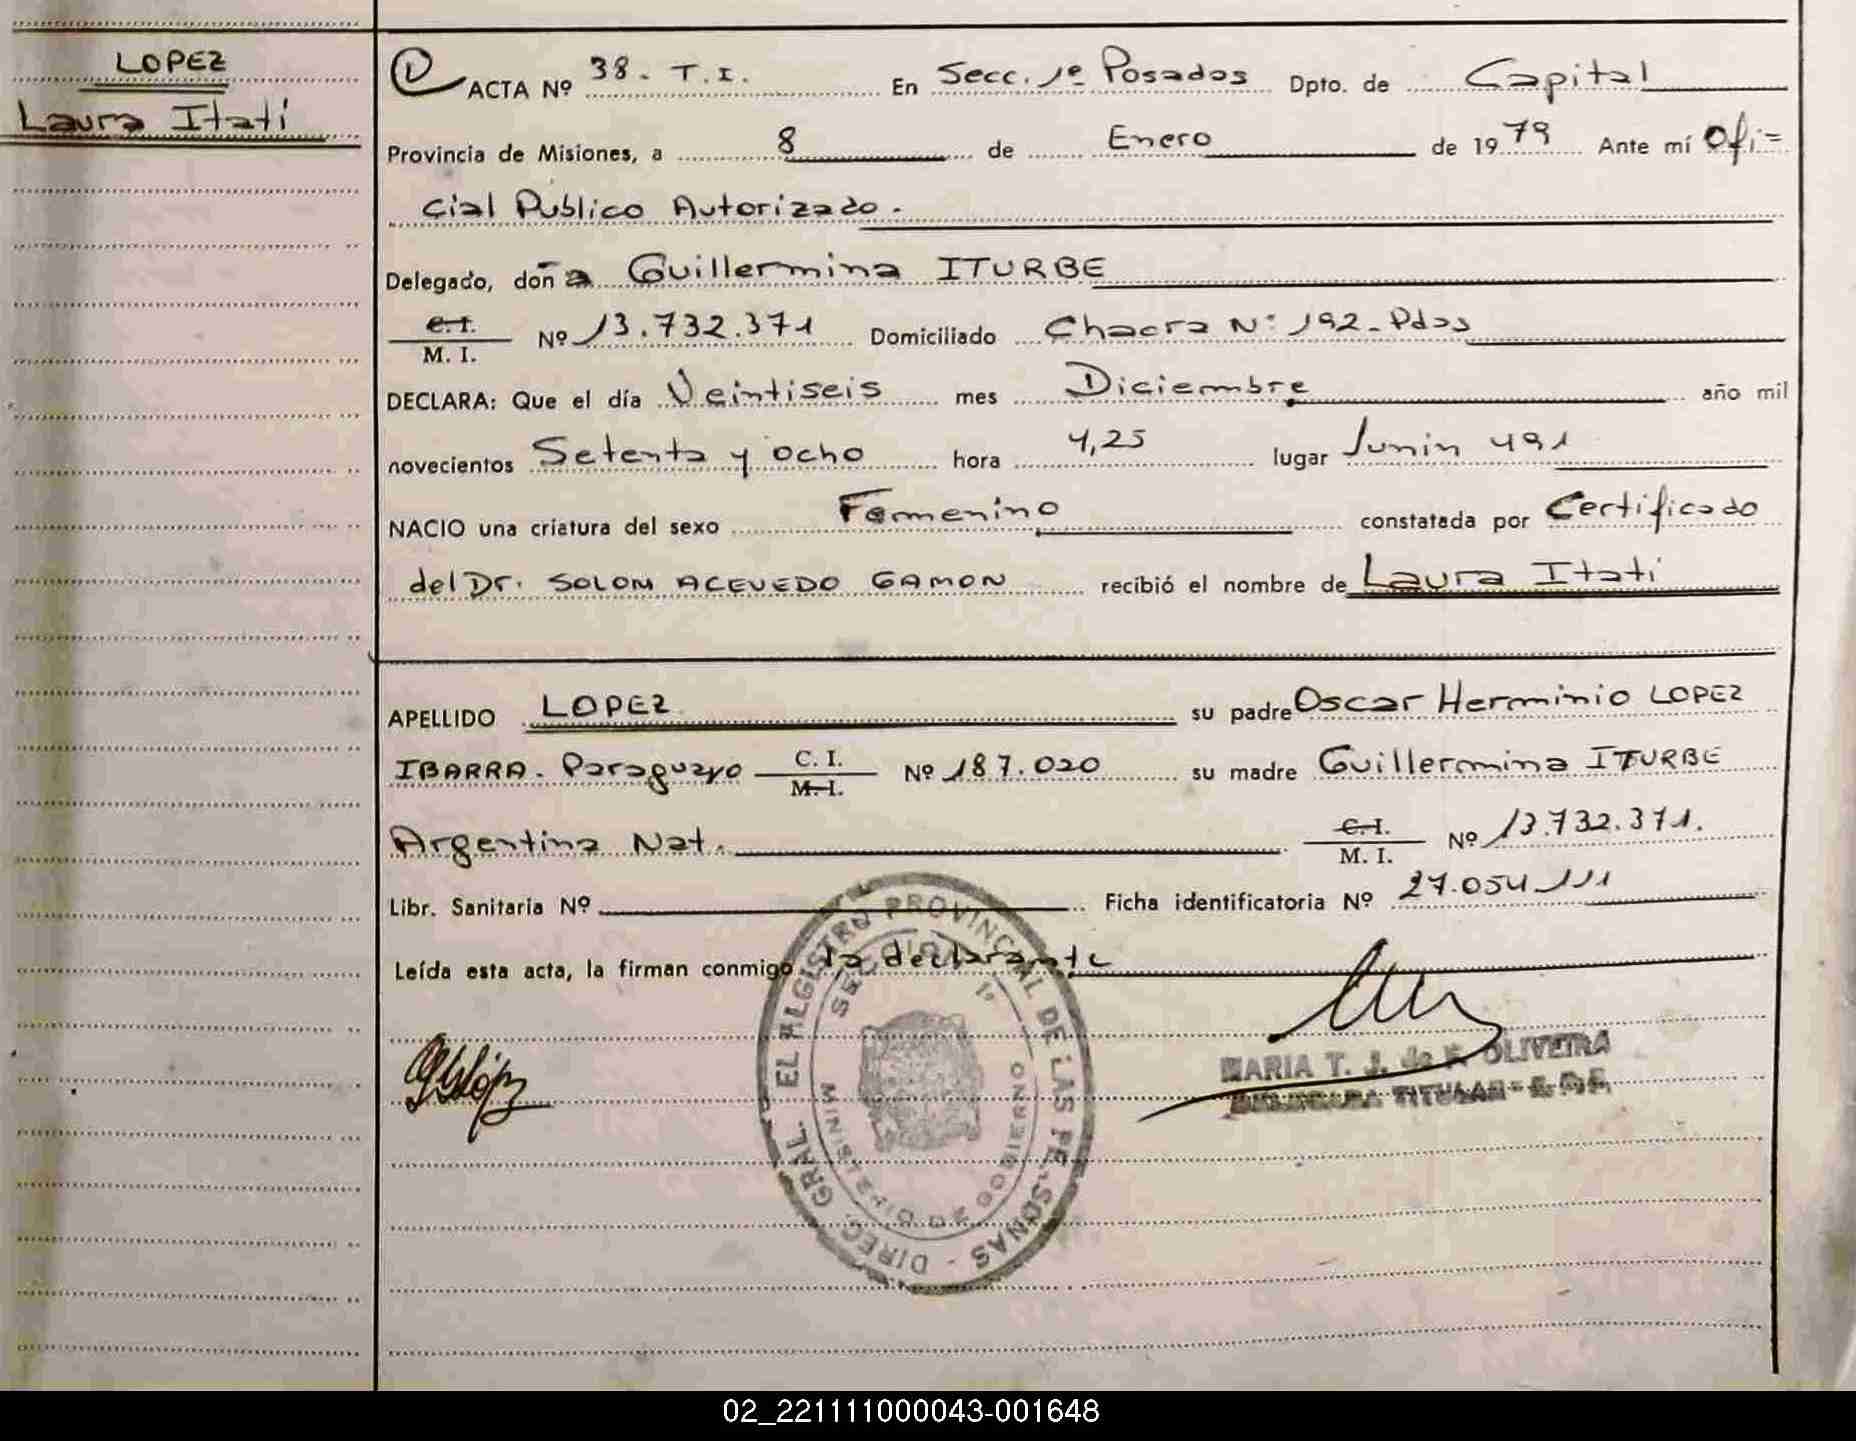 LOPEZ
Laura Itatí
D ACTA Nº 38. T.I. En Secc. 1º Posadas Dpto. de Capital
Provincia de Misiones, a 8 de Enero de 1979 Ante mí Ofi=
cial Público Autorizado.
Delegado, doña Guillermina ITURBE
C.I. M. I. Nº 13.732.371 Domiciliado Chacra N: 192-Pdas
DECLARA: Que el día Veintiseis mes Diciembre año mil
novecientos Setenta y ocho hora 4,25 lugar Junin 491
NACIO una criatura del sexo Femenino constatada por Certificado
del Dr. SOLOM ACEVEDO GAMON recibió el nombre de Laura Itatí
APELLIDO LOPEZ su padre Oscar Herminio LOPEZ
IBARRA. Paraguayo C. I. M. I. Nº 187.020 su madre Guillermina ITURBE
Argentina Nat. C. I. M. I. Nº 13.732.371.
Libr. Sanitaria Nº Ficha identificatoria Nº 27.054.111
Leída esta acta, la firman conmigo la declarante
DIREC. GRAL. EL REGISTRO PROVINCIAL DE LAS PERSONAS -
SECCION 1º
MINISTERIO DE GOBIERNO
MARIA T. J. de F. OLIVEIRA
DELEGADA TITULAR
02_221111000043-001648